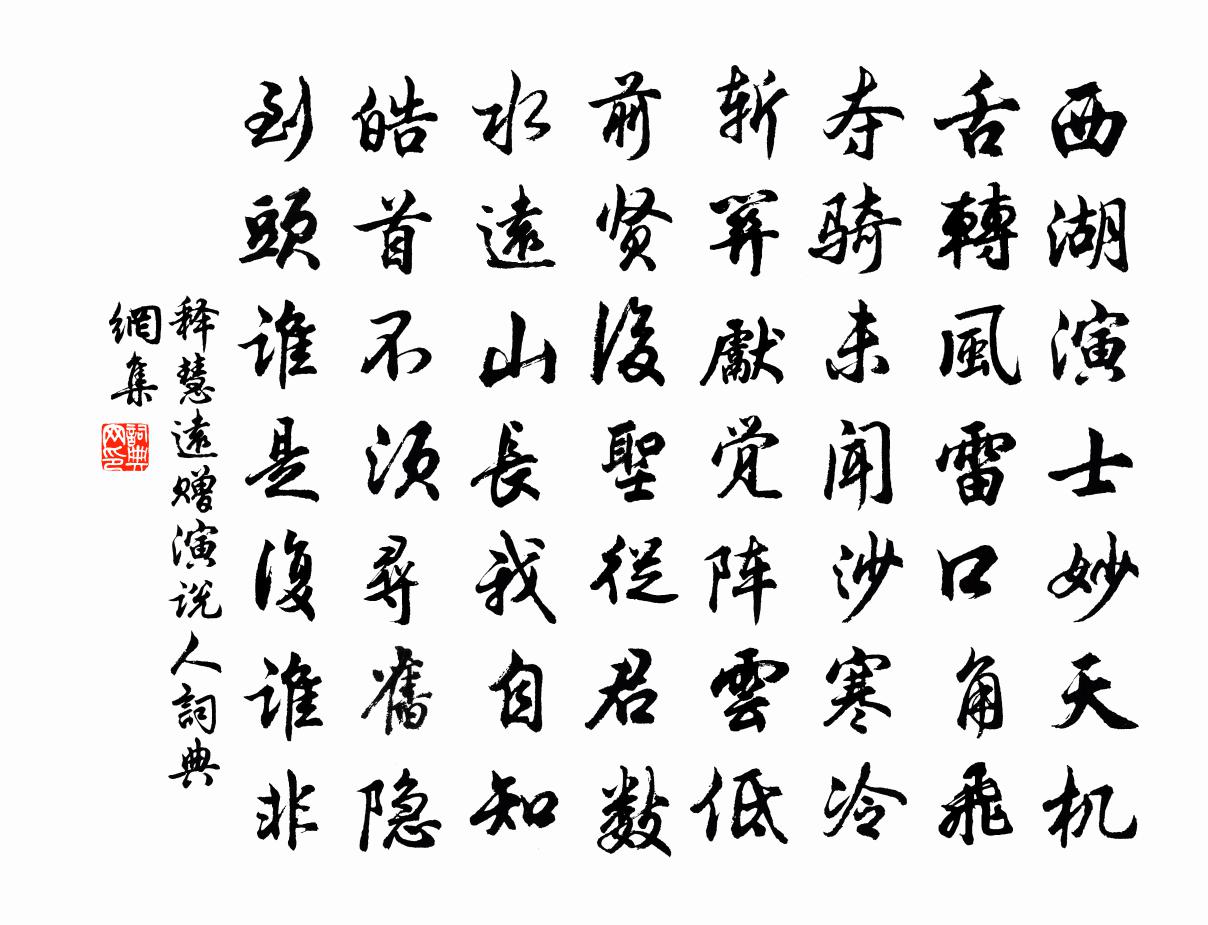 西湖演士妙天机
舌轉風雷口角飛
夺骑未闻沙寒冷
斩关獻觉阵雲低
前贤後聖從君数
水遠山長我自知
皓首不须尋舊隐
到頭谁是復谁非
释慧遠赠演说人詞典
網集
詞典网印